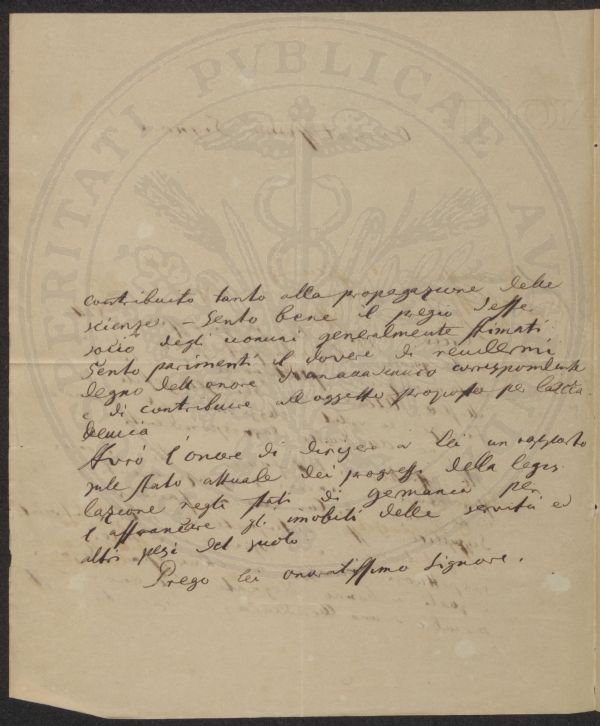 PROSPERITATI PVBLICAE AV
contribuito tanto alla propagazione delle
scienze – Sento bene il pregio d'esse
socio degli uomini generalmente stimati
Sento parimenti il dovere di rendermi
degno dell onore corrispondente
e di contribuire all oggetto proposto per l'acca
demia
Avrò l'onore di dirigere a lei un rapporto
sullo stato attuale dei progressi della legis
lazione negli stati di germania per
l affrancare gli imobili delle servitù ed
altri pesi del suolo
Prego lei onoratissimo Signore.